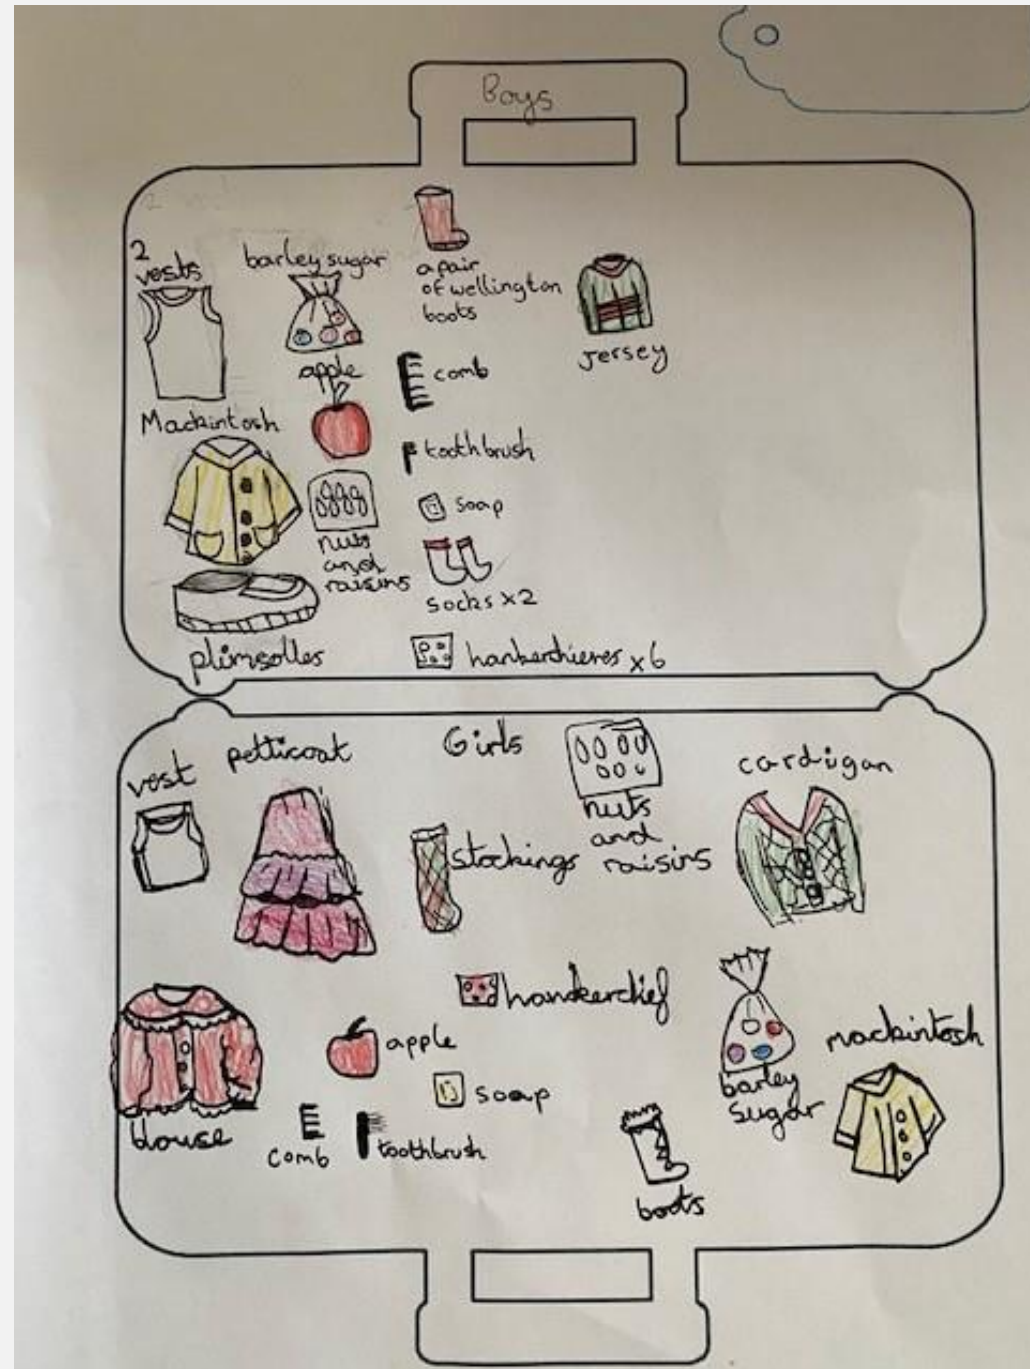 Boys
2
vests
barley sugar
a pair
of wellington
boots
Jersey
apple
comb
Mackintosh
toothbrush
soap
nuts
and
raisins
socks x2
plimsolles
hankerchieves x6
Girls
vest
petticoat
nuts
and
raisins
cardigan
stockings
hankerchief
apple
soap
mackintosh
barley
sugar
blouse
comb
toothbrush
boots